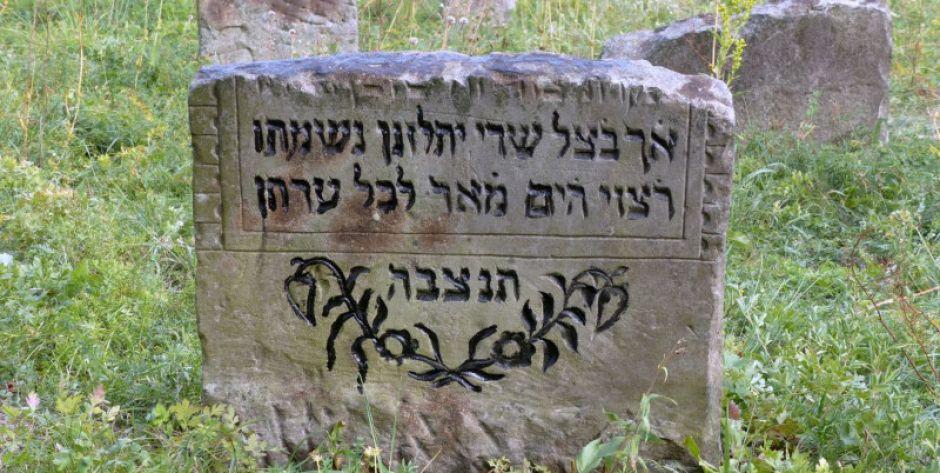 אך בצל שדי יתלונן נשמתו
רצוי הים מאד לכל עדתן
תנצבה